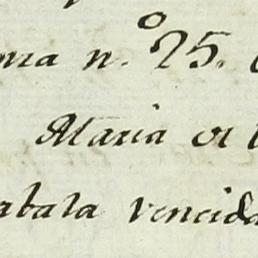 ma n.º 25.
Maria
abala vencida